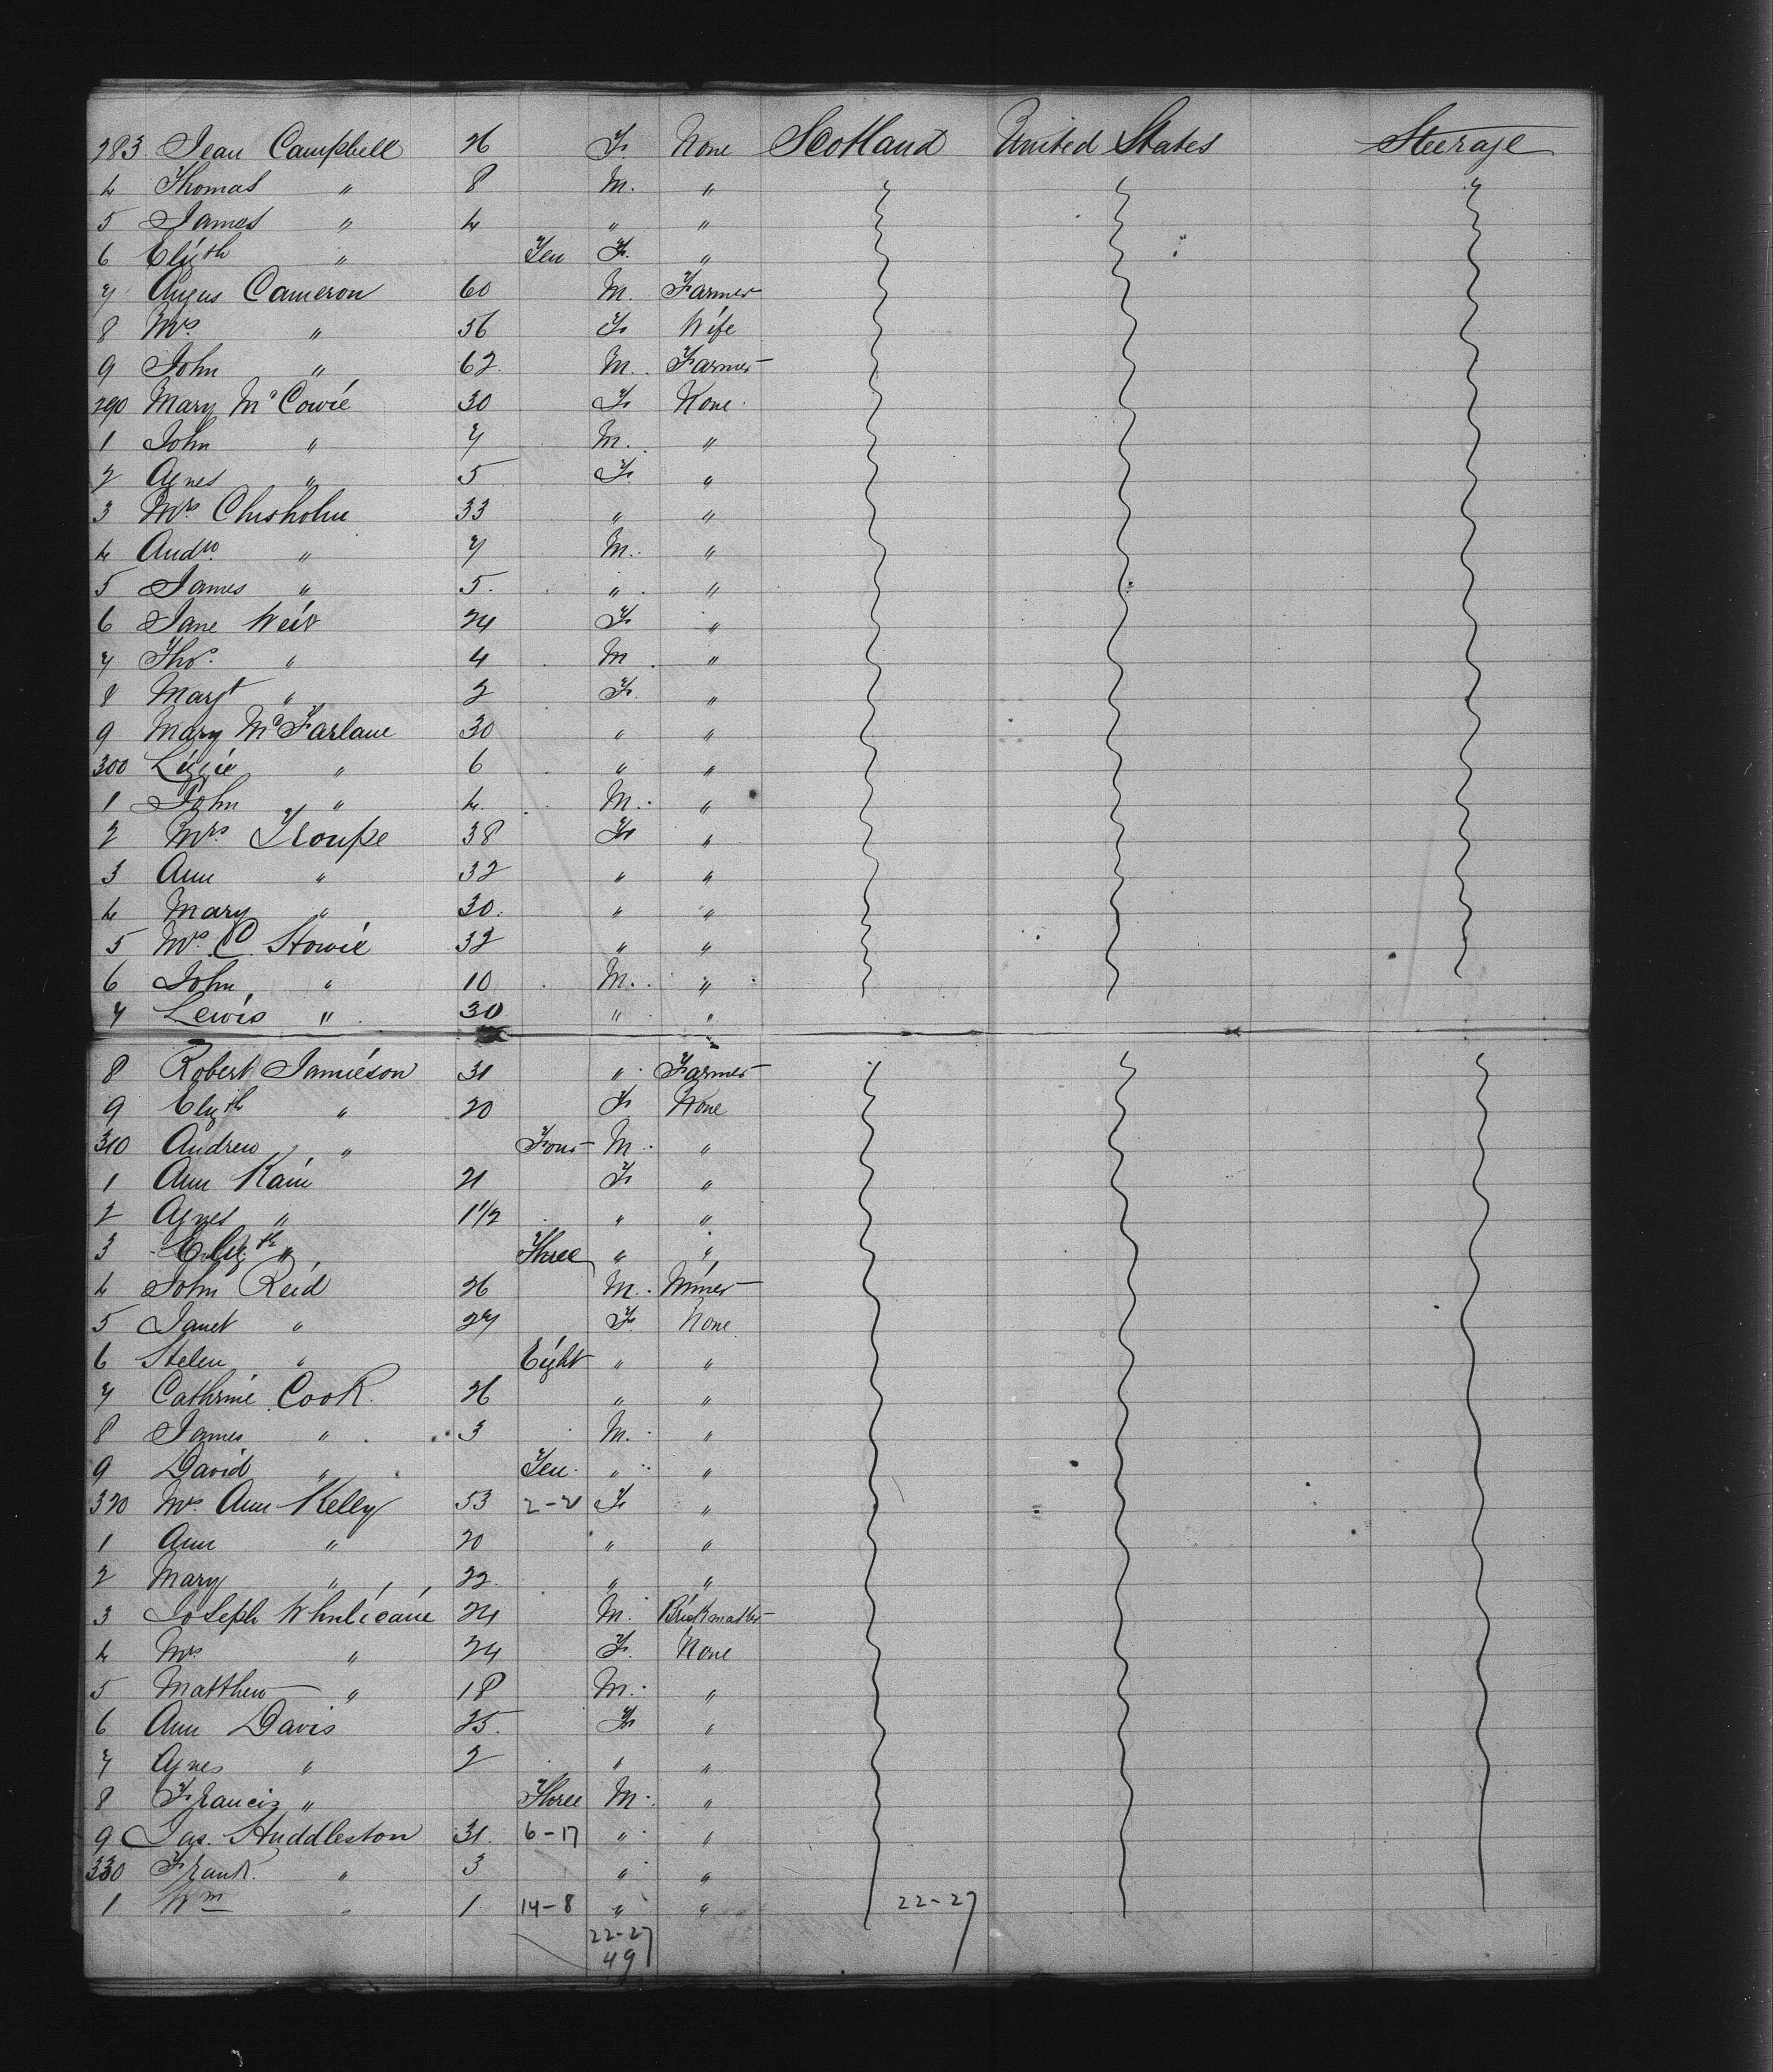 283. Jean Campbell 26 F. None Scotland United States Steerage
4 Thomas " 8 M. "
5 James " 4 " "
6 Elizth " Ten F. "
7 Angus Cameron 60 M. Farmer
8 Mrs " 56 F. Wife
9 John " 62. M. Farmer
290 Mary McCowie 30 F. None
1 John " 7 M. "
2 Agnes " 5 F. "
3 Mrs Chisholm 33 " "
4 Andw. " 7 M. "
5 James " 5. " "
6 Jane Weir 24 F. "
7 Thos. " 4 M "
8 Margt " 2 F. "
9 Mary McFarlane 30 " "
300 Lizzie " 6 " "
1 John " 4 M. "
2 Mrs Troupe 38 F. "
3 Ann " 32 " "
4 Mary " 30. " "
5 Mrs C. Stowie 32 " "
6 John " 10 M. "
7 Lewis " 30 " "
8 Robert Jamieson 31 " Farmer
9 Elizth " 20 F. None
310 Andrew " Four M. "
1 Ann Kain 21 F. "
2 Agnes " 1 1/2 " "
3 Elizth " Three " "
4 John Reid 26 M. Miner
5 Janet " 27 F. None
6 Helen " Eight " "
7 Cathrine Cook 26 " "
8 James " 3 M. "
9 David " Ten " "
320 Mrs Ann Kelly 53 2-2 F. "
1 Ann " 20 " "
2 Mary " 22. " "
3 Joseph 24 M. Brickmaker
4 Mrs " 24 F. None
5 Matthew " 18 M. "
6 Ann Davis 25. F. "
7 Agnes " 2 " "
8 Francis " Three M. "
9 Jas. Huddleston 31. 6-17 " "
330 Frank " 3 " "
1 Wm " 1 14-8 " " 22-27
22-27
49